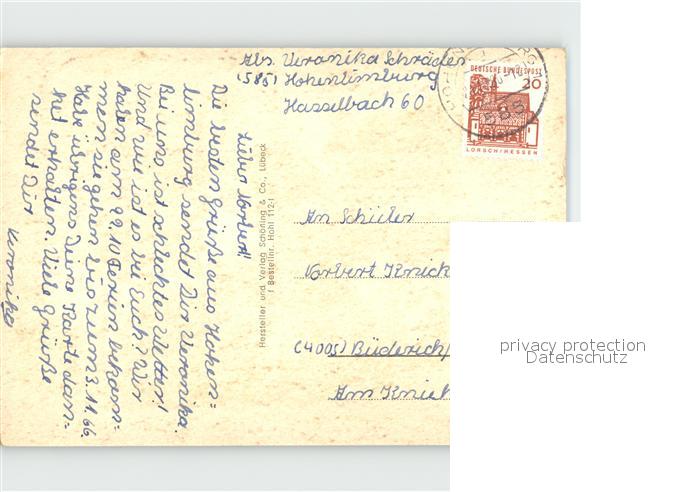 Abs. Veronika Schräder
(585) Hohenlimburg
Hasselbach 60
DEUTSCHE BUNDESPOST
20
LORSCH/HESSEN
Lieber Norbert!
Die besten Grüße aus Hohen=
limburg sendet Dir Veronika.
Bei uns ist schlechtes Wetter!
Und wie ist es bei Euch? Wir
haben am 22.10 Ferien bekom=
men sie gehen bis zum 3.11.66.
Habe übrigens Deine Karte dan=
kend erhalten. Viele Grüße
sendet Dir
Veronika
Hersteller und Verlag Schöning & Co., Lübeck
Bestellnr. Hohl 112
An Schüler
Norbert Knick
(4005) Büderich/
Am Knick
privacy protection
Datenschutz